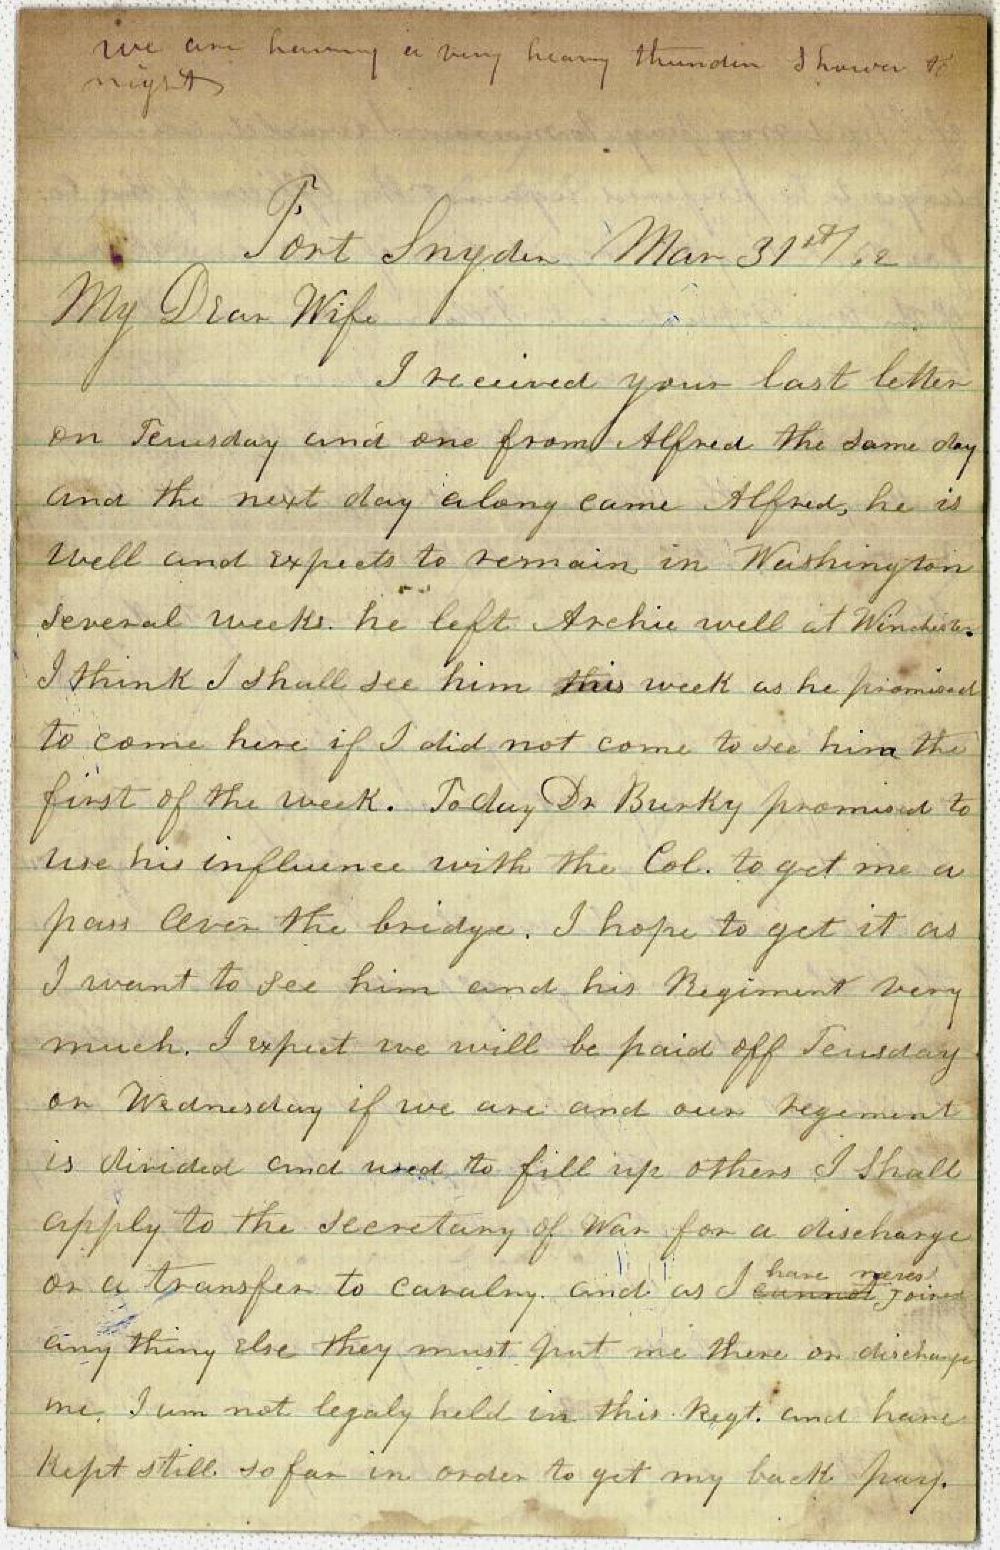 we are having a very heavy thunder shower to
night
Fort Snyder Mar 31st/62
My Dear Wife
I received your last letter
on Teusday and one from Alfred the same day
and the next day along came Alfred, he is
well and expects to remain in Washington
several weeks. he left Archie well at Winchester.
I think I shall see him this week as he promised
to come here if I did not come to see him the
first of the week. Today Dr Burky promised to
use his influence with the Col. to get me a
pass over the bridge. I hope to get it as
I want to see him and his Regiment very
much. I expect we will be paid off Teusday
or Wednesday if we are and our regement
is divided and used to fill up others I shall
apply to the Secretary of War for a discharge
or a transfer to cavalry. and as I cannot have never joined
any thing else they must put me there or discharge
me. I am not legaly held in this Regt. and have
kept still so far in order to get my back pay.